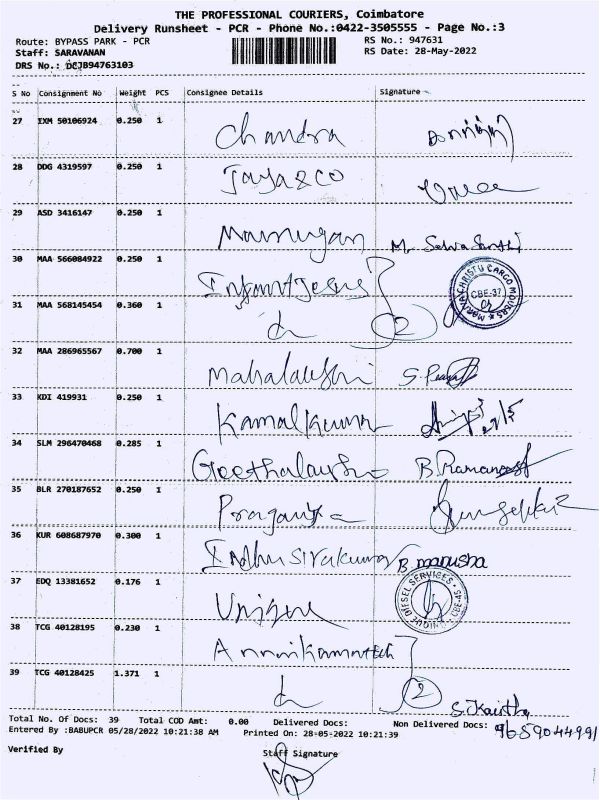 THE PROFESSIONAL COURIERS, Coimbatore
Delivery Runsheet - PCR - Phone No.:0422-3505555 - Page No.:3
Route: BYPASS PARK - PCR RS No.: 947631
Staff: SARAVANAN RS Date: 28-May-2022
DRS No.: DCJB94763103
S No Consignment No Weight PCS Consignee Details Signature
27 IXM 50106924 0.250 1 Chandra
28 DDG 4319597 0.250 1 Jaya & CO
29 ASD 3416147 0.250 1 Mr Selva Santhi
30 MAA 566084922 0.250 1 Infant Jesus
MARIYA CHRISTU CARGO MOVERS
CBE-37
31 MAA 568145454 0.360 1 2
32 MAA 286965567 0.700 1 Mahalakshmi
33 KDI 419931 0.250 1 Kamalkumar
34 SLM 296470468 0.285 1 B. Ramanan
35 BLR 270187652 0.250 1
36 KUR 608687970 0.300 1 Indhu Sivakumar B manusha
37 EDQ 13381652 0.176 1 Unique
UNIQUE DIESEL SERVICES CBE-45
38 TCG 40128195 0.230 1
39 TCG 40128425 1.371 1 2
Total No. Of Docs: 39 Total COD Amt: 0.00 Delivered Docs: Non Delivered Docs: 9659044991
Entered By :BABUPCR 05/28/2022 10:21:38 AM Printed On: 28-05-2022 10:21:39
Verified By Staff Signature